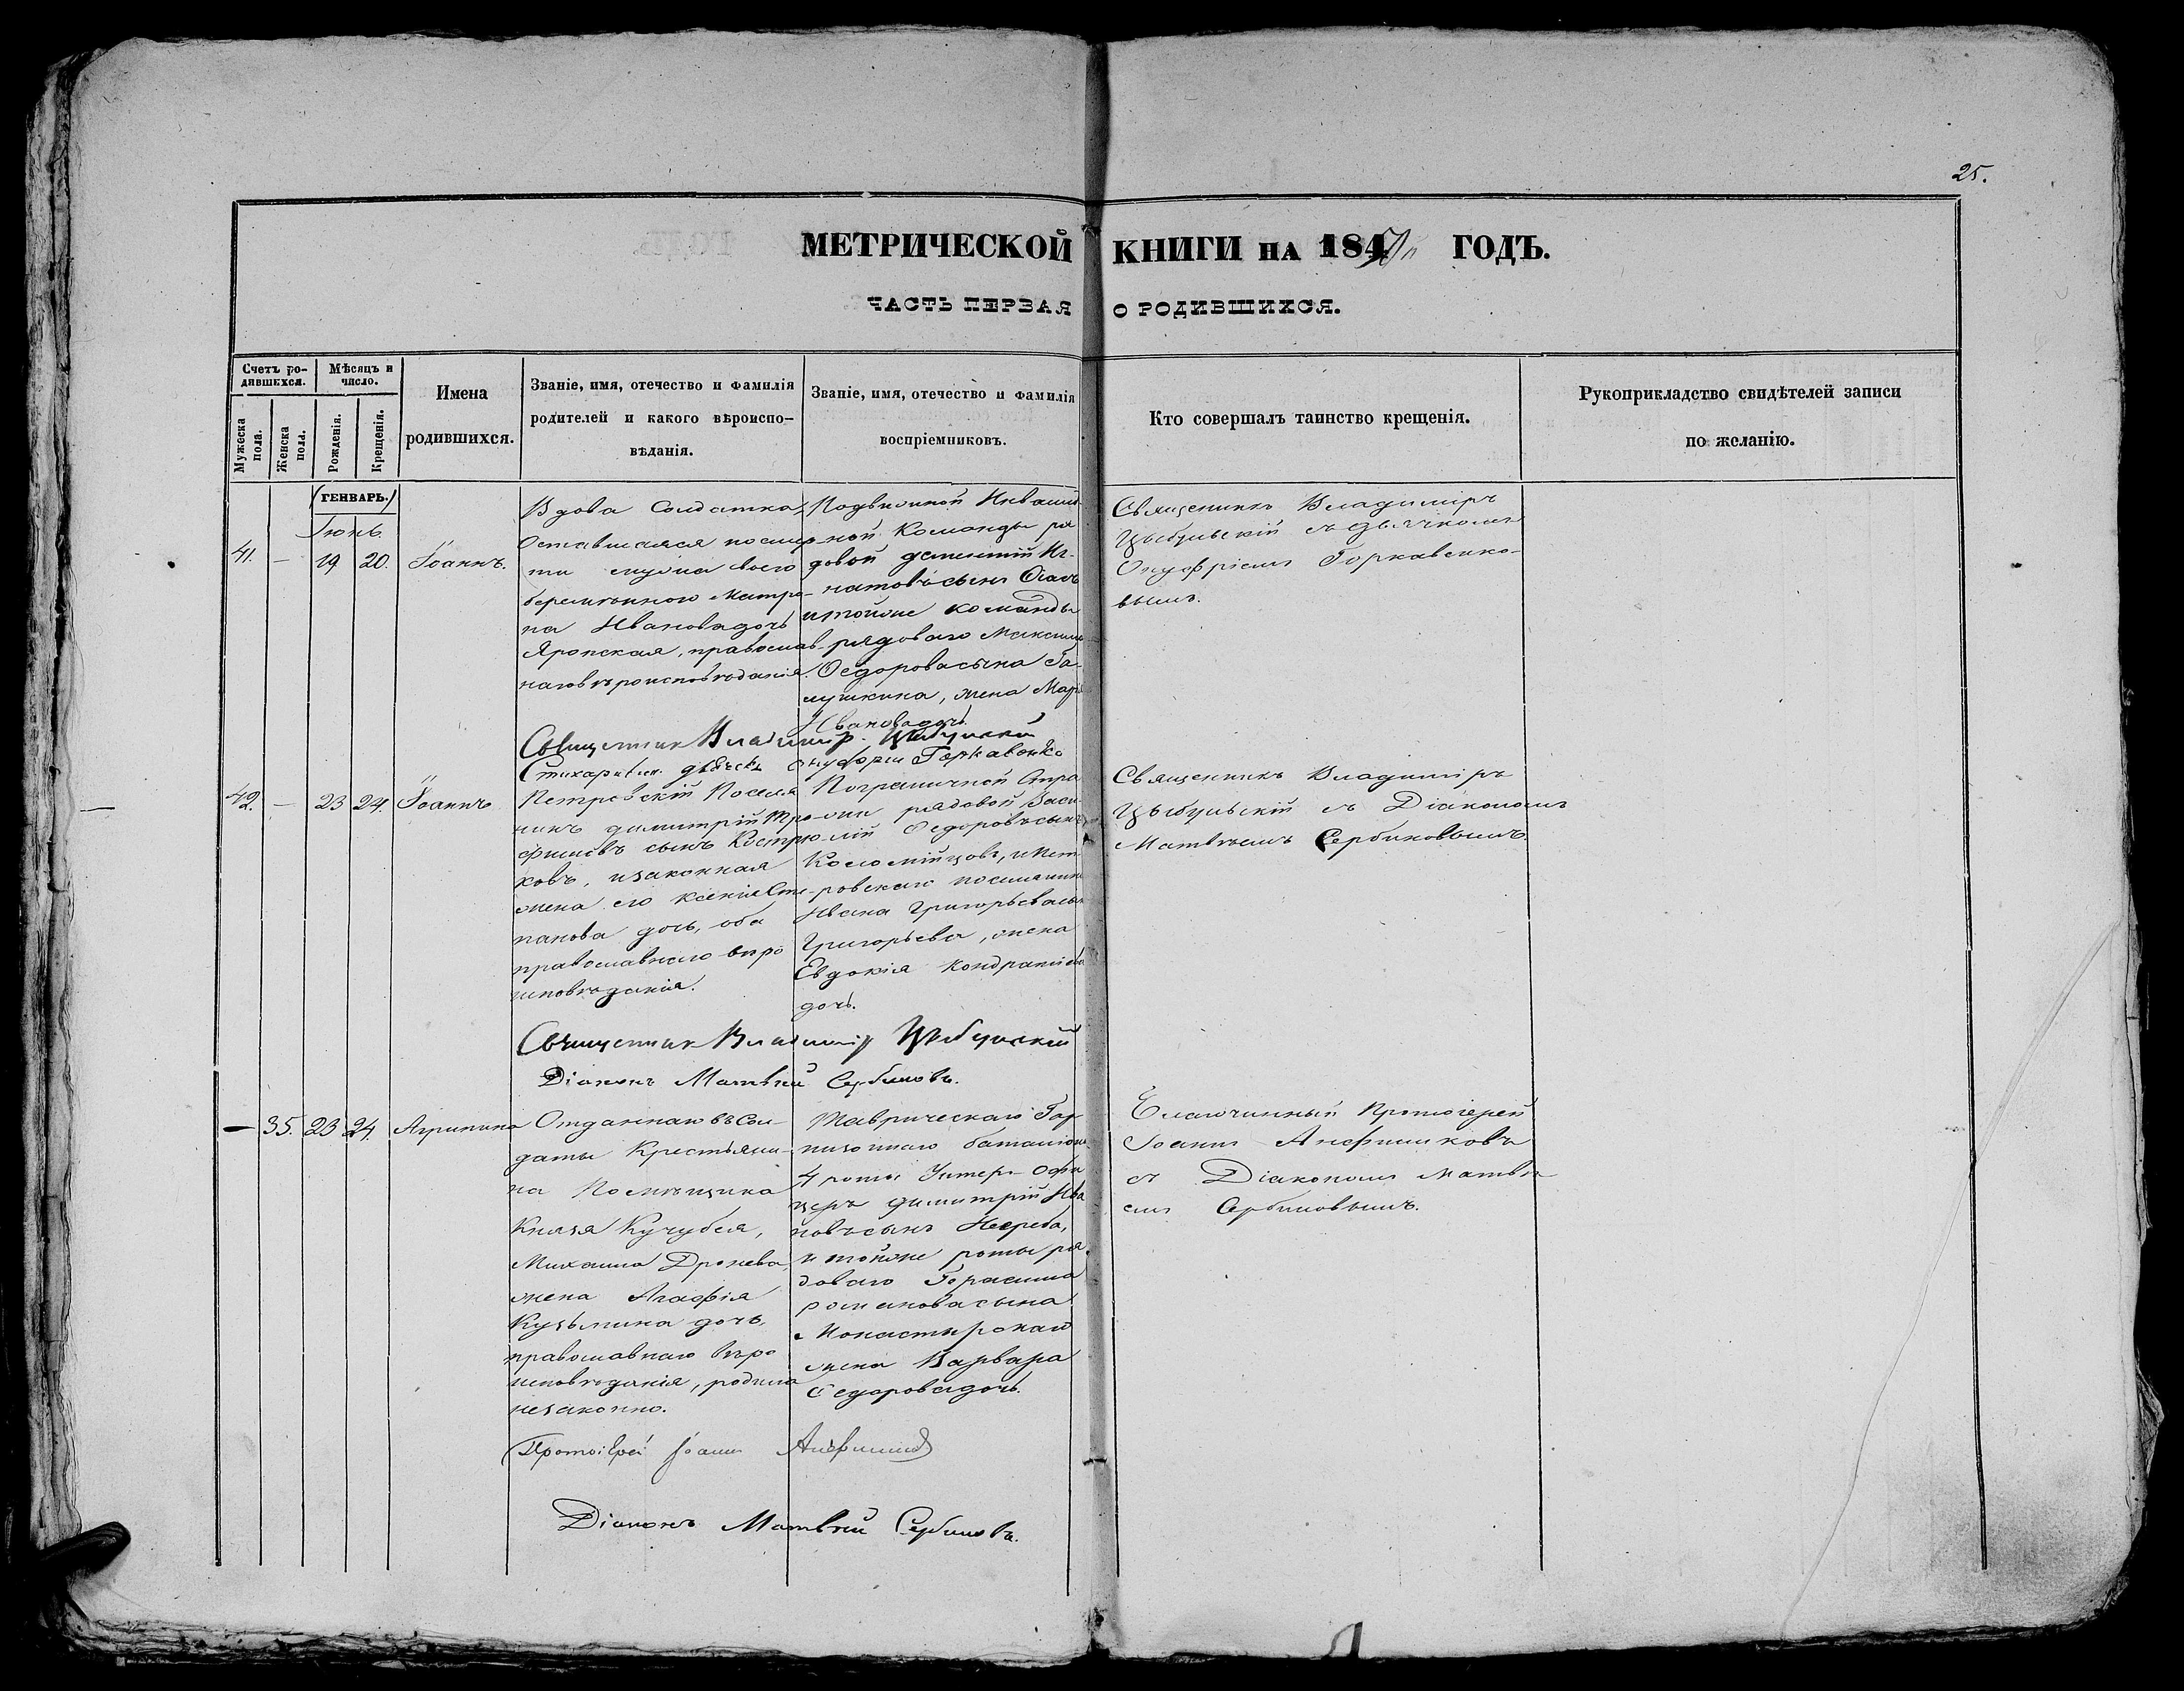 25.
МЕТРИЧЕСКОЙ КНИГИ НА 184 ГОДЪ.
ЧАСТЬ ПЕРВАЯ О РОДИВШИХСЯ.
Счетъ ро-
дившихся.
Мужеска
пола.
Женска
пола.
Мѣсяцъ и
число.
Рожденія.
Крещенія.
Имена
родившихся.
Званіе, имя, отечество и фамилія
родителей и какого вѣроиспо-
вѣданія.
Званіе, имя, отечество и фамилія
воспріемниковъ.
Кто совершалъ таинство крещенія.
Рукоприкладство свидѣтелей записи
по желанію.
ГЕНВАРЬ.
Іюнь.
41. — 19 20. Іоаннъ.
Вдова Солдатка,
Оставшаяся посмер-
ти мужа своего
беременною Матре-
на Иванова дочь
Яронская, православ-
наго вѣроисповѣданія.
Подвижной Инвалид-
ной Команды ря-
довой Дементій Иг-
натовъ сынъ
и тойже команды
рядоваго Максима
Ѳедорова сына Га-
лушкина, жена Марія
Иванова дочь.
Священникъ Владиміръ
Цыбульскій съ дьячкомъ
Онуфріемъ Горкавенко-
вымъ.
Священник Владимір Цыбульскій
Стихарный дьячекъ Онуфрій Горкавенко
42. — 23 24. Іоаннъ
Петровскій Поселя-
нинъ Димитрій Тро-
фимовъ сынъ Костри-
ковъ, и законная
жена его Ксенія Сте-
панова дочь, оба
православнаго вѣро
исповѣданія.
Пограничной Стра-
жи рядовой Васи-
лій Ѳедоровъ сынъ
Коломійцовъ, и Пет-
ровскаго поселянина
Ивана Григорьева сына
Григорьева, жена
Евдокія Кондратіева
дочь.
Священникъ Владиміръ
Цыбульскій съ Діакономъ
Матвѣемъ Сербиновымъ.
Священник Владимір Цыбульскій
Діаконъ Матвѣй Сербиновъ.
— 35. 23 24. Агрипина
Отданнаго въ Сол-
даты Крестьяни-
на Помѣщика
Князя Кучубея,
Михаила Дронева,
жена Агафія
Кузьмина дочь,
православнаго вѣро
исповѣданія, родила
незаконно.
Таврическаго Гар-
низоннаго баталіона
4 роты Унтеръ-Офи
церъ Димитрій Ива
новъ сынъ
и тойже роты ря-
доваго Герасима
Романова сына
Монастырскаго
жена Варвара
Ѳедорова дочь.
Благочинный Протоіерей
Іоаннъ Анфимковъ
съ Діакономъ Матвѣ
емъ Сербиновымъ.
Протоіерей Іоаннъ
Діаконъ Матвѣй Сербиновъ.